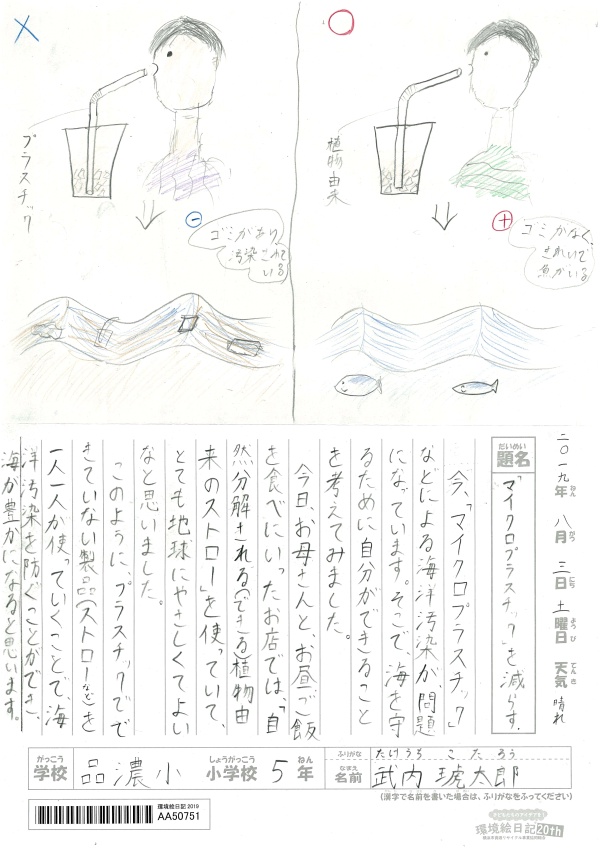 プラスチック
ゴミがあり
汚染されて
いる
植物由来
ゴミがなく、
きれいで
魚がいる
二〇一九年 八月 三日 土曜日 天気 晴れ
ねん がつ にち ようび てんき
だいめい
題名
「マイクロプラスチック」を減らす。
今、「マイクロプラスチック」
などによる海洋汚染が、問題
になっています。そこで、海を守
るために自分ができること
を考えてみました。
今日、お母さんと、お昼ご飯
を食べにいったお店では、「自
然分解される(できる)植物由
来のストロー」を使っていて、
とても地球にやさしくてよい
なと思いました。
このように、プラスチックでで
きていない製品(ストローなど)を
一人一人が使っていくことで、海
洋汚染を防ぐことができ、
海が豊かになると思います。
がっこう
学校
品濃小
しょうがっこう
小学校
5
ねん
年
ふりがな
たけうち こたろう
なまえ
名前
武内 琥太郎
(漢字で名前を書いた場合は、ふりがなをふってください)
環境絵日記2019
AA50751
環境絵日記20th